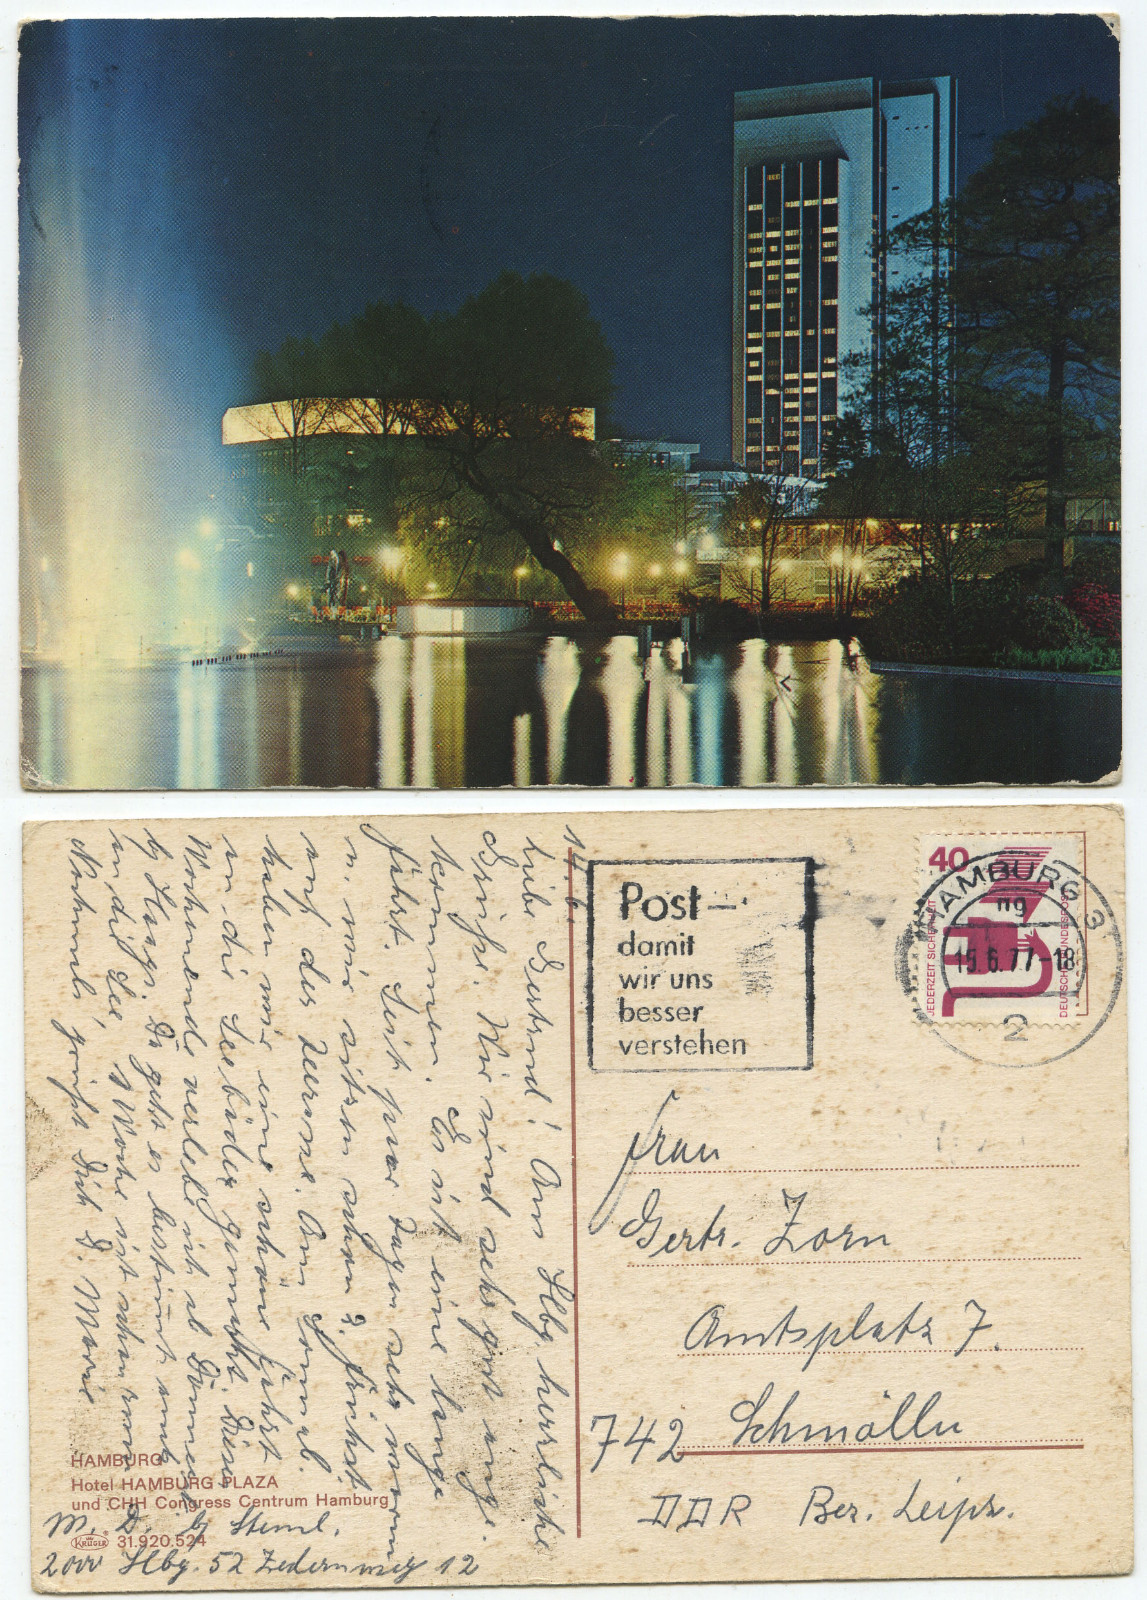 14.6.
Liebe Gertrud! Aus Hbg. herzliche
Grüße. Wir sind sehr gut ange-
kommen. Es ist eine lange
Fahrt. Seit paar Tagen sehr warm
u wir sitzen schon z. Frühst
auf der Terrasse. Am Sonnab.
haben wir eine schöne Fahrt
in die Seebäder gemacht. Diese
Woche verlebe ich ab Donners
by Hansj. Du gehst es bestimmt auch
an die See, Woche ist schon rum
Nochmals, grüßt Dich D. Marie
HAMBURG
Hotel HAMBURG PLAZA
und CHH Congress Centrum Hamburg
KRÜGER 31.920.524
M. D. by Steml.
2000 Hbg. 52 Zedernweg 12
Post —
damit
wir uns
besser
verstehen
40
JEDERZEIT SICHERHEIT
DEUTSCHE BUNDESPOST
HAMBURG 3
ng
15.6.77-18
2
Frau
Gertr. Zorn
Amtsplatz 7.
742 Schmölln
DDR Bez. Leipz.